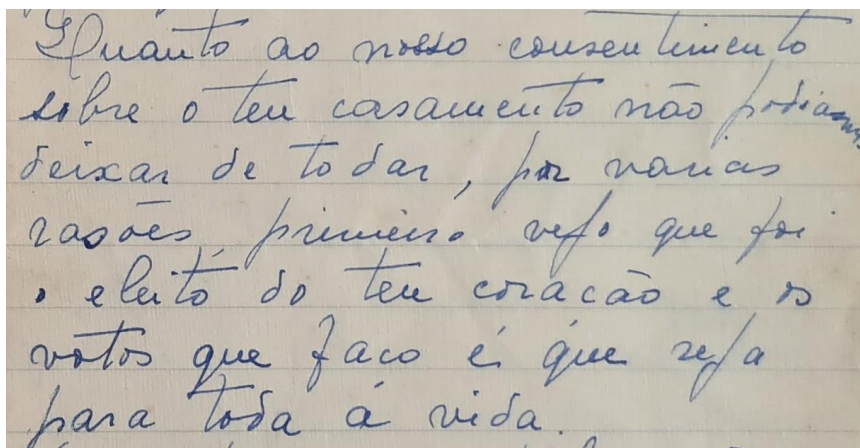 Quanto ao nosso consentimento
sobre o teu casamento não podiamos
deixar de to dar, por varias
rasões, primeiro vejo que foi
o eleito do teu coracão e os
votos que faco é que seja
para toda a vida.